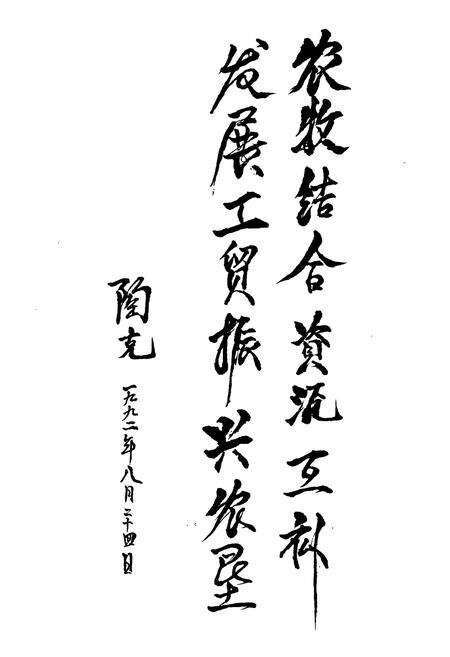 农牧结合 資源互补
发展工贸振兴农垦
陶克
一九九二年八月二十四日